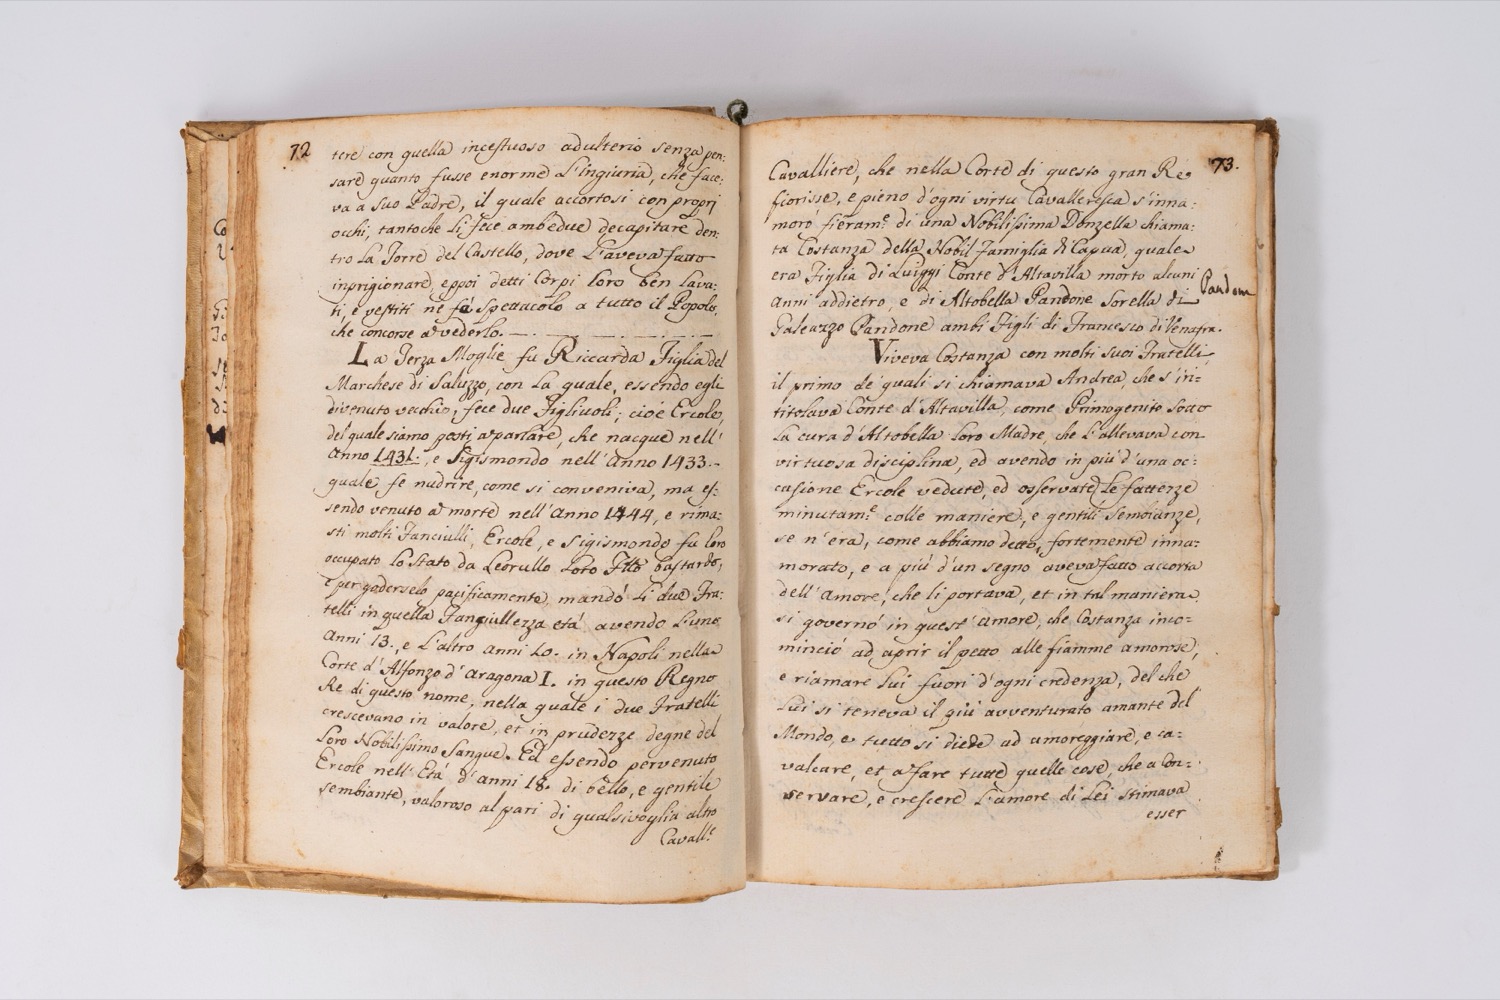 72
tere con quella incestuoso adulterio senza pen:
sare quanto fusse enorme L'ingiuria, che face:
va a suo Padre, il quale accortosi con proprj
occhi, tantoche li fece ambedue decapitare den:
tro La Torre del Castello, dove L'aveva fatto
inprigionare, eppoi detti Corpi loro ben Lava:
ti, e vestiti nè fà spettacolo a tutto il Popolo,
che concorse a vederlo.
La Terza Moglie fu Riccarda Figlia del
Marchese di Saluzzo, con La quale, essendo egli
divenuto vecchio, fece due Figliuoli; cioè Ercole,
del quale siamo posti a parlare, che nacque nell'
Anno 1431., e Sigismondo nell'Anno 1433.
quale fe nudrire, come si conveniva, ma es:
sendo venuto a morte nell'Anno 1444, e rima:
sti molti Fanciulli, Ercole, e Sigismondo fu loro
occupato Lo Stato da Leorullo Loro Fllo bastardo,
e per goderselo pacificamente, mandò Li due Fra:
telli in quella Fangiullezza età avendo L'uno
Anni 13., e L'altro anni 10. in Napoli nella
Corte d'Alfonzo d'Aragona I. in questo Regno
Re di questo nome, nella quale i due Fratelli
crescevano in valore, et in prudezze degne del
loro Nobilissimo Sangue. Ed essendo pervenuto
Ercole nell'Età d'anni 18. di bello, e gentile
sembiante, valoroso al pari di qualsivoglia altro
Cavall.e
73.
Cavalliere, che nella Corte di questo gran Re
fiorisse, e pieno d'ogni virtu Cavalleresca s'inna:
morò fieram.e di una Nobilissima Donzella chiama:
ta Costanza della Nobil Famiglia di Capua, quale
era Figlia di Luiggi Conte d'Altavilla morto alcuni
Anni addietro, e di Altobella Pandone Sorella di
Pandone
Galeazzo Pandone ambi Figli di Francesco di Venafra.
Viveva Costanza con molti suoi Fratelli,
il primo de' quali si chiamava Andrea, che s'in:
titolava Conte d'Altavilla, come Primogenito sotto
La cura d'Altobella loro Madre, che L'allevava con
virtuosa disciplina, ed avendo in più d'una oc:
casione Ercole vedute, ed osservate Le fattezze
minutam.e colle maniere, e gentili sembianze,
se n'era, come abbiamo detto, fortemente inna:
morato, e a più d'un segno aveva fatto accorta
dell'Amore, che li portava, et in tal maniera
si governò in quest'Amore, che Costanza inco:
minciò ad aprir il petto alle fiamme amorose,
e riamare Lui fuori d'ogni credenza, del che
Lui si teneva il più avventurato amante del
Mondo, e tutto si diede ad amoreggiare, e ca:
valcare, et a fare tutte quelle cose, che a Con:
servare, e crescere L'amore di Lei stimava
esser